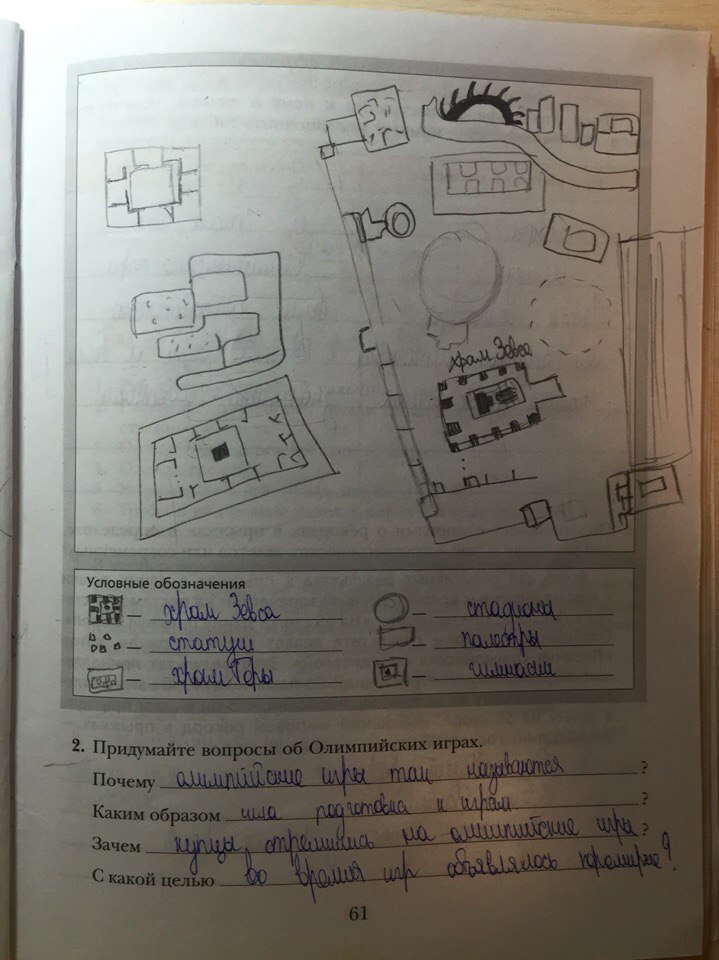 храм Зевса
Условные обозначения
— храм Зевса — стадионы
— статуи — палестры
— храм Геры — гимнасии
2. Придумайте вопросы об Олимпийских играх.
Почему олимпийские игры так называются ?
Каким образом шла подготовка к играм ?
Зачем купцы стремились на олимпийские игры ?
С какой целью во времия игр объявлялось перемирие ?
61